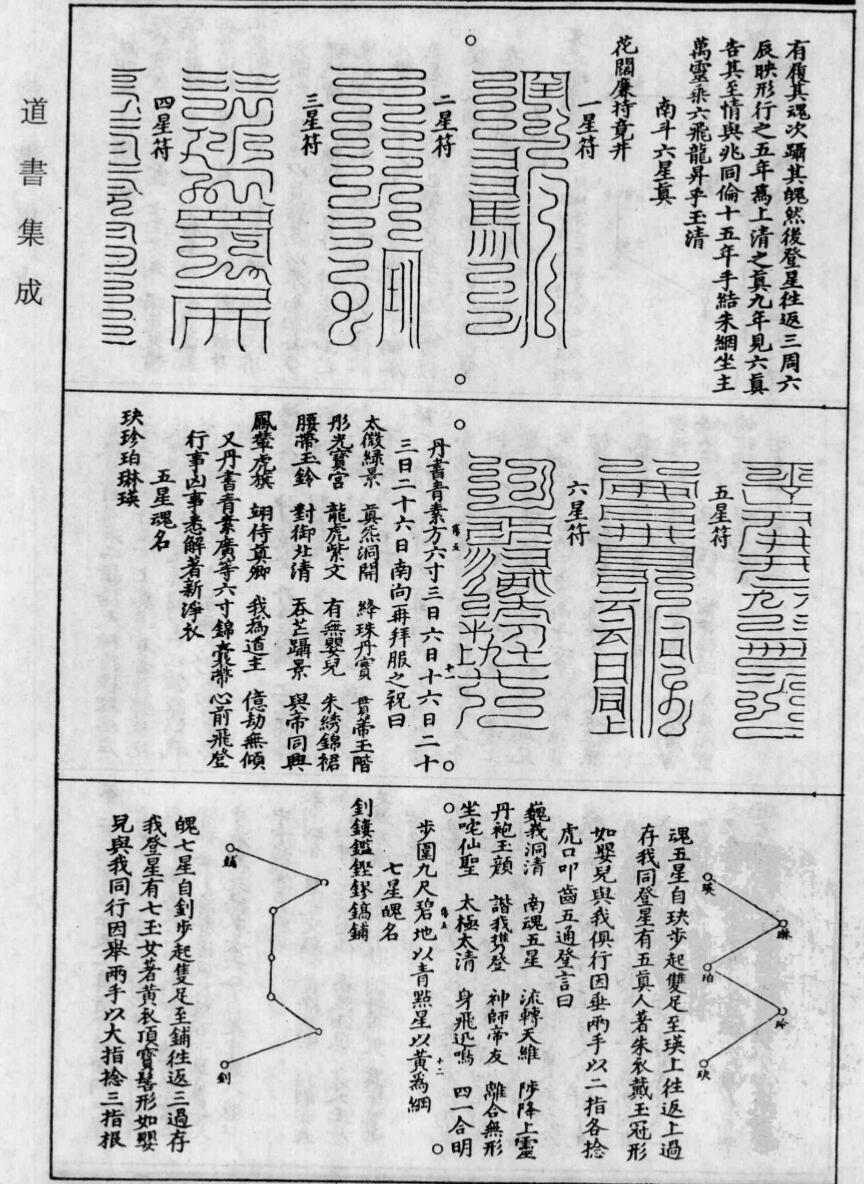 道書集成
有履其魂次躡其魄然後登星往返三周六
辰映形行之五年為上清之真九年見六真
告其至情與兆同倫十五年手結朱網坐主
萬靈乘六飛龍昇乎玉清
南斗六星真
花闊廉持竟井
一星符
二星符
三星符
四星符
五星符
六星符
丹書青素方六寸三日六日十六日二十
三日二十六日南向再拜服之祝曰
太微綠景 真炁洞開 絳珠丹實 貫蒂玉階
彤光寶宮 龍虎紫文 有無嬰兒 朱綉錦裙
腰帶玉鈴 對御北清 吞芒躡景 與帝同輿
鳳輦虎旗 翊侍真卿 我為道主 億劫無傾
又丹書青素廣等六寸錦囊帶心前飛登
行事凶事悉解著新淨衣
五星魂名
玦珍珀琳瑛
瑛
琳
珀
玲
玦
魂五星自玦步起雙足至瑛上往返上過
存我同登星有五真人著朱衣戴玉冠形
如嬰兒與我俱行因垂兩手以二指各捻
虎口叩齒五通登言曰
巍峩洞清 南魂五星 流轉天維 陟降上靈
丹袍玉顏 諧我攜登 神師帝友 離合無形
坐咤仙聖 太極太清 身飛迅鳴 四一合明
步圍九尺碧地以青點星以黃為綱
七星魄名
釗鏤鑑鏗鏐鎬鋪
鋪
釗
魄七星自釗步起隻足至鋪往返三過存
我登星有七玉女著黃衣頂寶髻形如嬰
兒與我同行因舉兩手以大指捻三指根